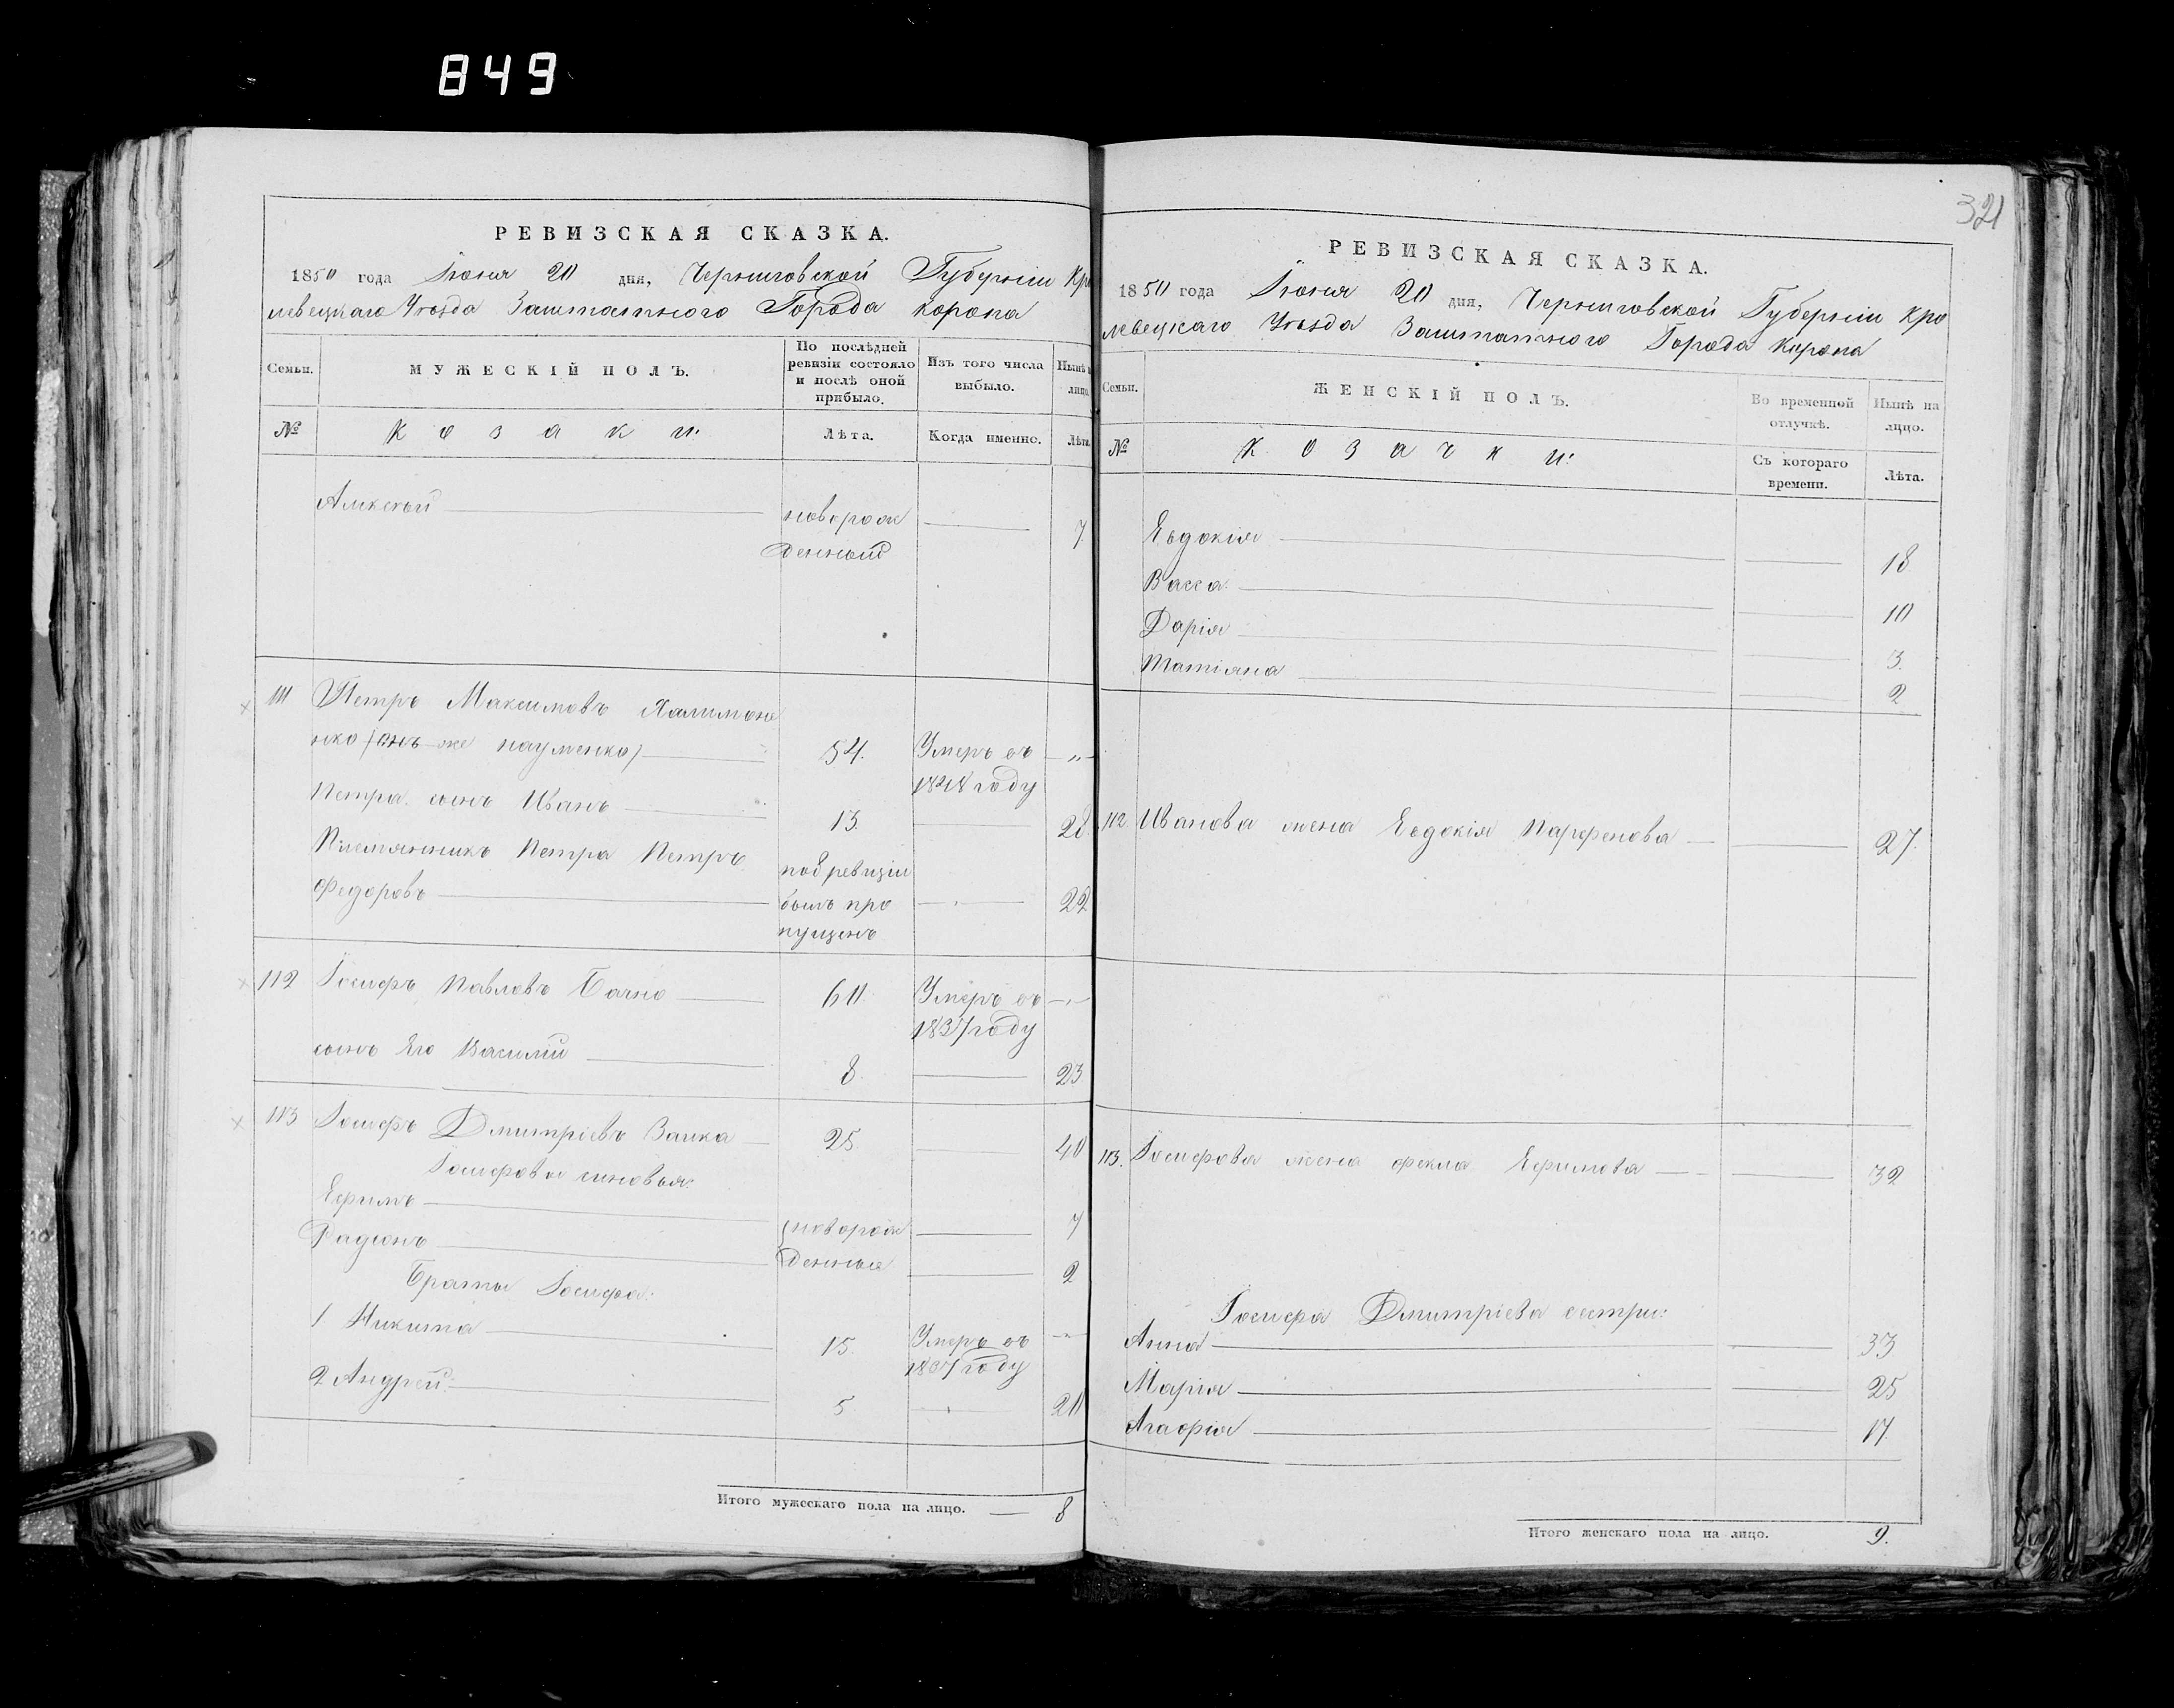 849
РЕВИЗСКАЯ СКАЗКА.
1850 года Іюня 20 дня, Черниговской Губерніи Кро
левецкаго Уѣзда Заштатного Города Коропа
Семьи.
МУЖЕСКІЙ ПОЛЪ.
По послѣдней ревизіи состояло и послѣ оной прибыло.
Изъ того числа выбыло.
Нынѣ на лицо
№
Козаки:
Лѣта.
Когда именно.
Лѣта
Алексѣй новорож 7
денный
111 Петръ Максимовъ Халимоне
нко (онъ же Науменко) 54. Умеръ въ „
1848 году
Петра сынъ Иванъ 13. 28.
Племянникъ Петра Петръ по 8 ревизіи
Федоровъ былъ про 22
пущенъ
112 Іосифъ Павловъ Бачно 60. Умеръ въ „
1837 году
сынъ Его Василій 8. 23
113 Іосифъ Дмитріевъ Заика 25. 40
Іосифовы сыновья:
Ефимъ новорож 7
Радіонъ денные 2
Браты Іосифа:
1 Никита 15. Умеръ въ „
1837 году
2 Андрей 5 20
Итого мужескаго пола на лицо. 8
321
РЕВИЗСКАЯ СКАЗКА.
1850 года Іюня 20 дня, Черниговской Губерніи Кро
левецкаго Уѣзда Заштатного Города Коропа
Семьи.
ЖЕНСКІЙ ПОЛЪ.
Во временной отлучкѣ.
Нынѣ на лицо.
№
Козачки:
Съ котораго времени.
Лѣта.
Евдокія 18
Васса 10
Дарія 3.
Татіяна 2
112. Иванова жена Евдокія Парфенова 27.
113. Іосифова жена Фекла Ефимова 32
Іосифа Дмитріева сестри:
Анна 33
Марія 25
Агафія 17.
Итого женскаго пола на лицо. 9.